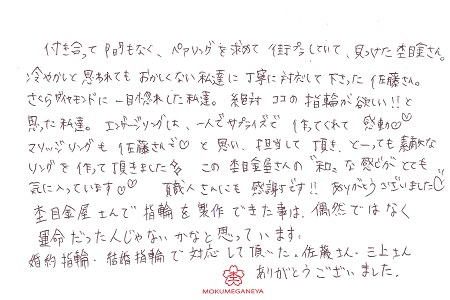 付き合って間もなく、ペアリングを求めて街ブラしていて、見つけた杢目金さん。
冷やかしと思われてもおかしくない私達に丁寧に対応して下さった佐藤さん。
さくらダイヤモンドに一目惚れした私達。絶対ココの指輪が欲しい!!と
思った私達。エンゲージリングは、一人でサプライズで作ってくれて感動♡♡
マリッジリングも佐藤さんで♡と思い、担当して頂き、とーっても素敵な
リングを作って頂きました この杢目金屋さんの"和"な感じがとても
気に入っています♡♡ 職人さんにも感謝です!! ありがとうございました♡
杢目金屋さんで指輪を製作できた事は、偶然ではなく
運命だったんじゃないかなと思っています。
婚約指輪・結婚指輪で対応して頂いた、佐藤さん・三上さん
ありがとうございました。
MOKUMEGANEYA